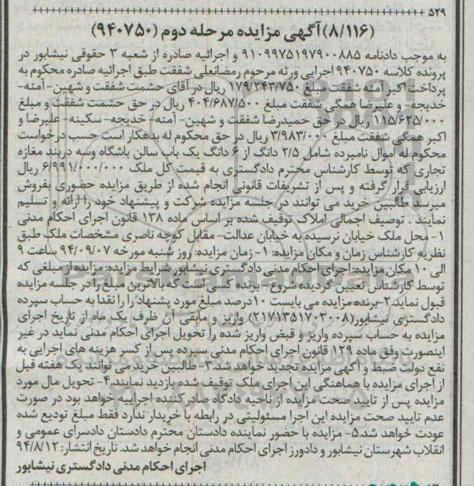 ۵۲۹
(۸/۱۱۶) آگهی مزایده مرحله دوم (۹۴۰۷۵۰)
به موجب دادنامه ۹۱۰۹۹۷۵۱۹۷۹۰۰۸۸۵ و اجرائیه صادره از شعبه ۳ حقوقی نیشابور در
پرونده کلاسه ۹۴۰۷۵۰ اجرایی ورثه مرحوم رمضانعلی شفقت طبق اجرائیه صادره محکوم به
پرداخت اکبر آمنه شفقت مبلغ ۱۷۹/۳۴۳/۷۵۰ ریال در آقای حشمت شفقت و شهین- آمنه-
خدیجه- و علیرضا همگی شفقت مبلغ ۴۰۴/۶۸۷/۵۰۰ ریال در حق حشمت شفقت و مبلغ
۱۱۵/۶۲۵/۰۰۰ ریال در حق حمیدرضا شفقت و شهین- آمنه- خدیجه- سکینه- علیرضا و
اکبر همگی شفقت مبلغ ۳/۹۸۳/۰۰۰ ریال در حق محکوم له بدهکار است حسب درخواست
محکوم له اموال نامبرده شامل ۲/۵ دانگ از ۶ دانگ یک باب سالن باشگاه وسه دربند مغازه
تجاری که توسط کارشناس محترم دادگستری به قیمت کل ملک ۶/۹۹۱/۰۰۰/۰۰۰ ریال
ارزیابی قرار گرفته و پس از تشریفات قانونی انجام شده از طریق مزایده حضوری بفروش
میرسد طالبین خرید می توانند در جلسه مزایده شرکت و پیشنهاد خود را ارائه و تسلیم
نمایند. توصیف اجمالی املاک توقیف شده بر اساس ماده ۱۳۸ قانون اجرای احکام مدنی
۱- محل ملک خیابان نرسیده به خیابان عدالت- مقابل کوچه ناصری مشخصات ملک طبق
نظریه کارشناس زمان و مکان مزایده: ۱- زمان مزایده: روز شنبه مورخه ۹۴/۰۹/۰۷ ساعت ۹
الی ۱۰ مکان مزایده: اجرای احکام مدنی دادگستری نیشابور شرایط مزایده: مزایده از مبلغی که
توسط کارشناس تعیین گردیده شروع- برنده کسی است که بالاترین مبلغ را در جلسه مزایده
قبول نماید ۲- برنده مزایده می بایست ۱۰ درصد مبلغ مورد پیشنهاد را نقدا به حساب سپرده
دادگستری نیشابور (۲۱۷۱۳۵۱۷۰۳۰۰۸) واریز و مابقی آن ظرف یک ماه از تاریخ اجرای
مزایده به حساب سپرده واریز و قبض واریز شده را تحویل اجرای احکام مدنی نماید در غیر
اینصورت وفق ماده ۱۲۹ قانون اجرای احکام مدنی سپرده پس از کسر هزینه های اجرایی به
نفع دولت ضبط و آگهی مزایده تجدید خواهد شد. ۳- طالبین خرید می توانند یک هفته قبل
از اجرای مزایده با هماهنگی این اجرای ملک توقیف شده بازدید نمایند. ۴- تحویل مال مورد
مزایده پس از تایید صحت مزایده از ناحیه دادگاه صادر کننده اجرائیه خواهد بود در صورت
عدم تایید صحت مزایده این اجرا مسئولیتی در رابطه با خریدار ندارد فقط مبلغ تودیع شده
عودت خواهد شد. ۵- مزایده با حضور نماینده دادستان محترم دادستان دادسرای عمومی و
انقلاب شهرستان نیشابور و دادورز اجرای احکام مدنی انجام خواهد شد. تاریخ انتشار: ۹۴/۸/۱۲
اجرای احکام مدنی دادگستری نیشابور